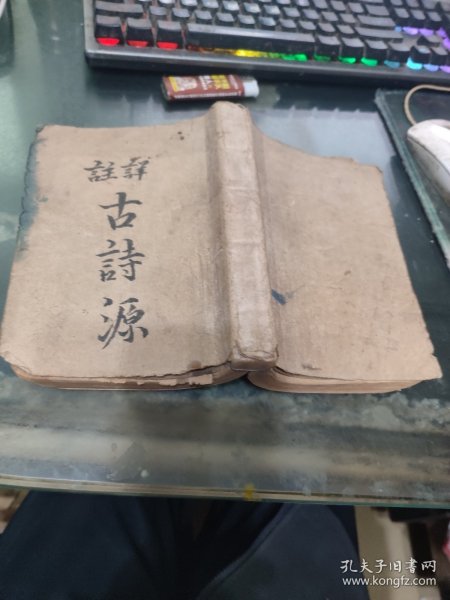 詳註
古詩源
孔夫子旧书网
www.kongfz.com